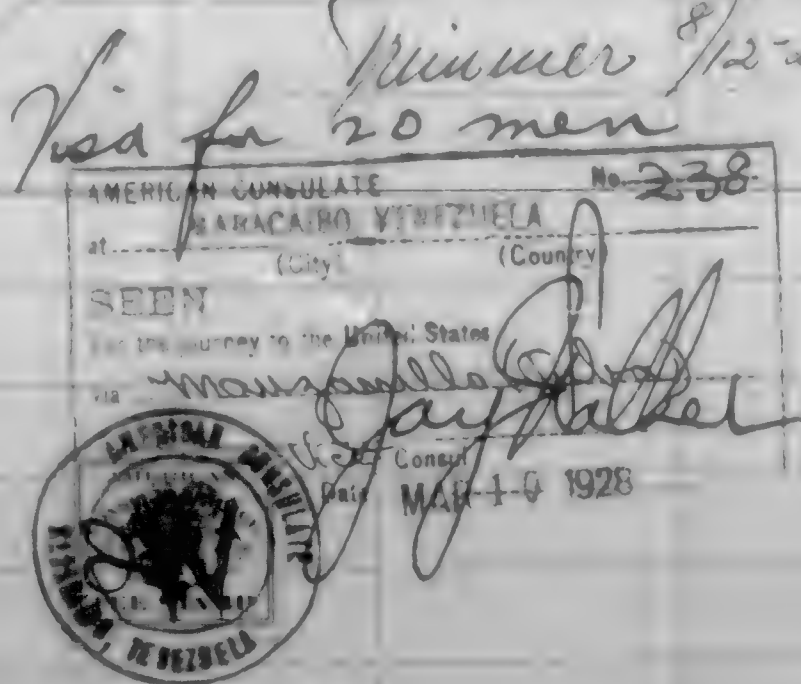 8/12-
Visa for 20 men
AMERICAN CONSULATE No. 238
at MARACAIBO VENEZUELA
(City) (Country)
SEEN
For the journey to the United States
via
Jay Walker
Vice Consul
Date MAR 10 1928
AMERICAN CONSULATE
MARACAIBO, VENEZUELA